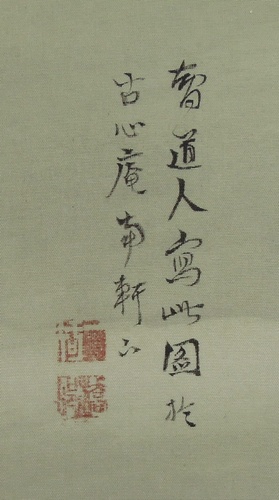 道人寫此圖於
古心庵南軒下